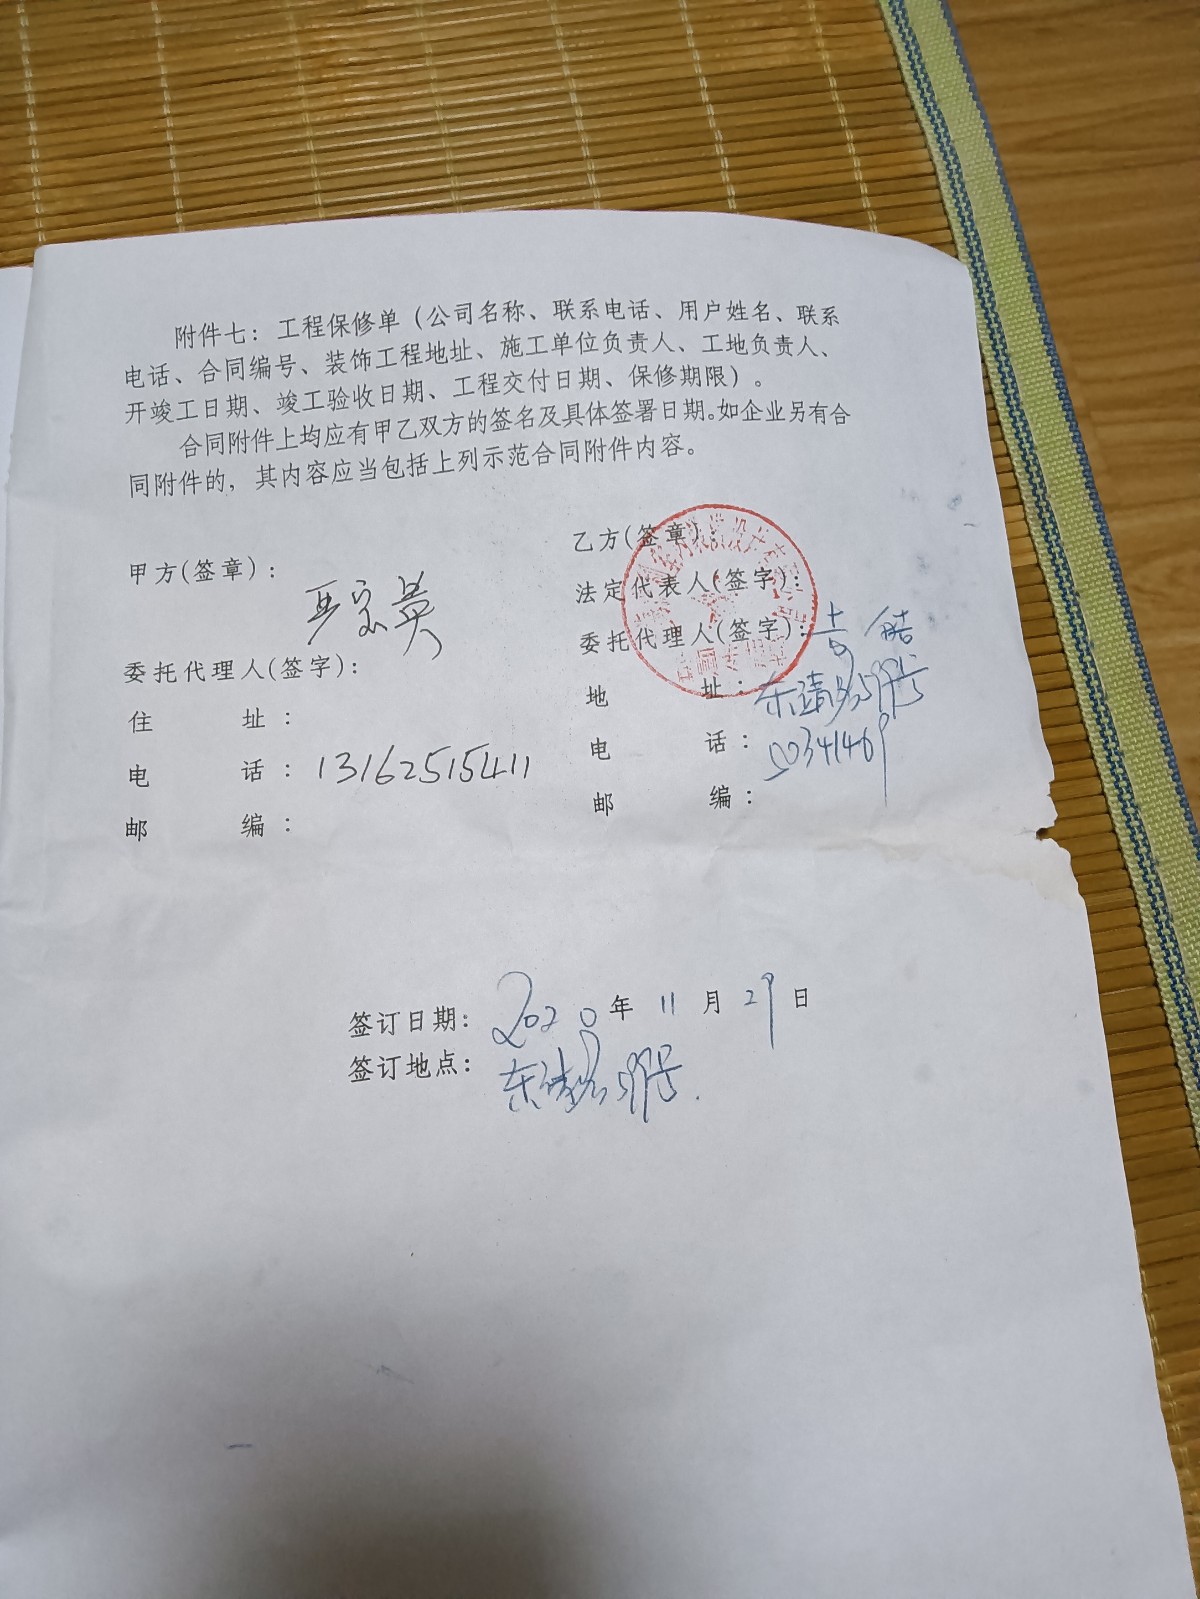 附件七：工程保修单（公司名称、联系电话、用户姓名、联系
电话、合同编号、装饰工程地址、施工单位负责人、工地负责人、
开竣工日期、竣工验收日期、工程交付日期、保修期限）。
合同附件上均应有甲乙双方的签名及具体签署日期。如企业另有合
同附件的，其内容应当包括上列示范合同附件内容。
甲方(签章)：
委托代理人(签字)：
住 址：
电 话：13162515411
邮 编：
乙方(签章)：
法定代表人(签字)：
委托代理人(签字)：
地 址：
电 话：
邮 编：
签订日期：2020年 11月 29日
签订地点：